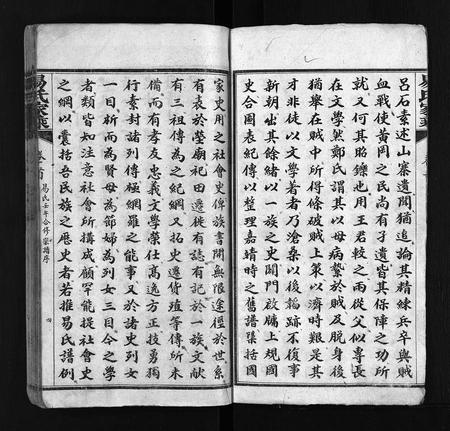 呂石素述山寨遺聞猶追論其精練兵卒與賊
血戰使黃岡之民尚有孑遺皆其保陣之功所
就又何其賂鑠也用王君較之兩從父似專長
在文學然鄭氏謂其以母病摯於賊及脫身後
猶舉在賊中所得條破賊上策以濟時艱是其
才非徒以文學著者乃滄桑以後韜跡不復事
新朝出其餘緒以一族之史開門啟牖上規國
史合圖表紀傳以整理嘉靖時之舊譜張括國
家史用之社會史俾族書闢無限途徑於世系
有表於塋廟祀田遷徙有誌有記於一族文獻
有三祖傳為之紀綱又拓史遷貨殖等傳所未
備而有孝友忠義文學崇仕高逸方正技勇獨
行素封諸列傳極網羅之能事又於諸史列女
一目析而為賢母為節婦為列女三目今之學
者類皆知注意社會所搆成顧罕能提社會史
之綱以囊括吾民族之歷史者若推易氏譜例
易氏家乘
卷首
易氏壬午合修宗譜序
四